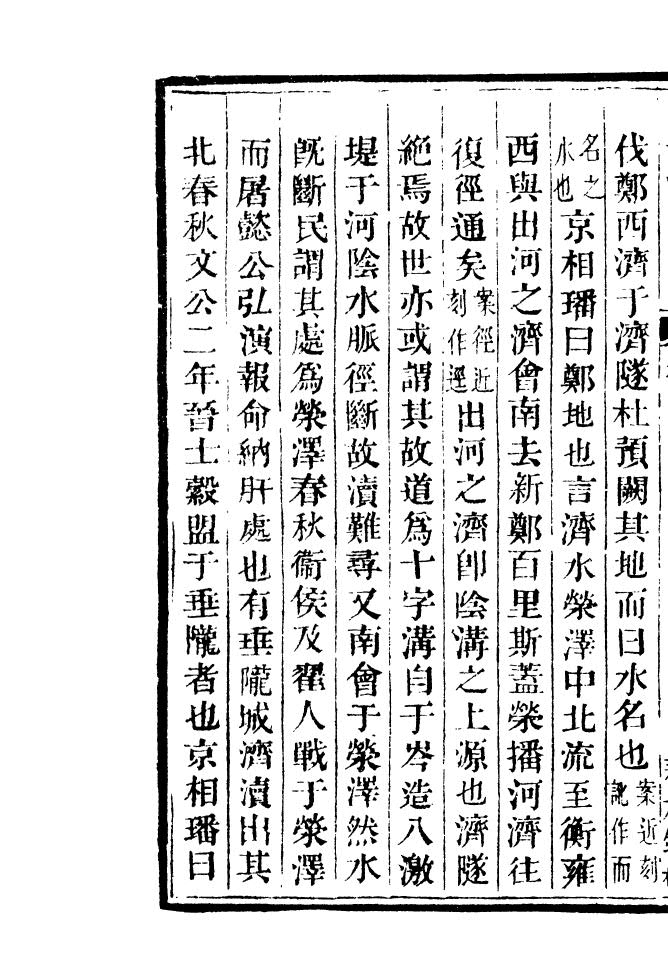 伐鄭西濟于濟隧杜預闕其地而曰水名也案近刻訛作而
名之水也京相璠曰鄭地也言濟水滎澤中北流至衡雍
西與出河之濟會南去新鄭百里斯蓋滎播河濟往
復徑通矣案徑近刻作逕出河之濟卽陰溝之上源也濟隧
絶焉故世亦或謂其故道為十字溝自于岑造八激
堤于河陰水脈徑斷故瀆難尋又南會于滎澤然水
旣斷民謂其處為滎澤春秋衞侯及翟人戰于滎澤
而屠懿公弘演報命納肝處也有垂隴城濟瀆出其
北春秋文公二年晉士縠盟于垂隴者也京相璠曰